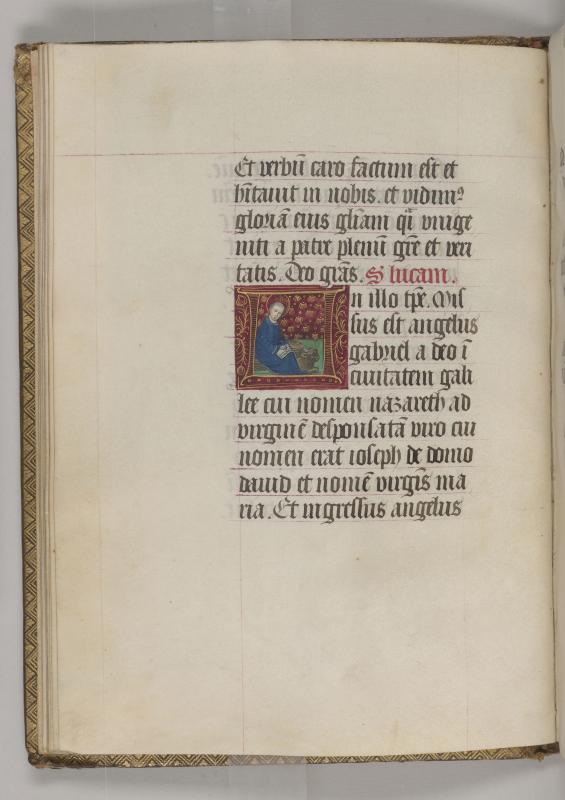 Et verbū caro factum est et
hītavit in nobis. et vidimꝰ
gloriā eius gl̄iam q̄i vnige
niti a patre plenū gr̄e et veri
tatis. Deo gr̄as. S lucam.
n illo tp̄e. Mis
sus est angelus
gabriel a deo ī
civitatem gali
lee cui nomen nazareth ad
virginē desponsatā viro cui
nomen erat ioseph de domo
david et nomē virgīs ma
ria. Et ingressus angelus